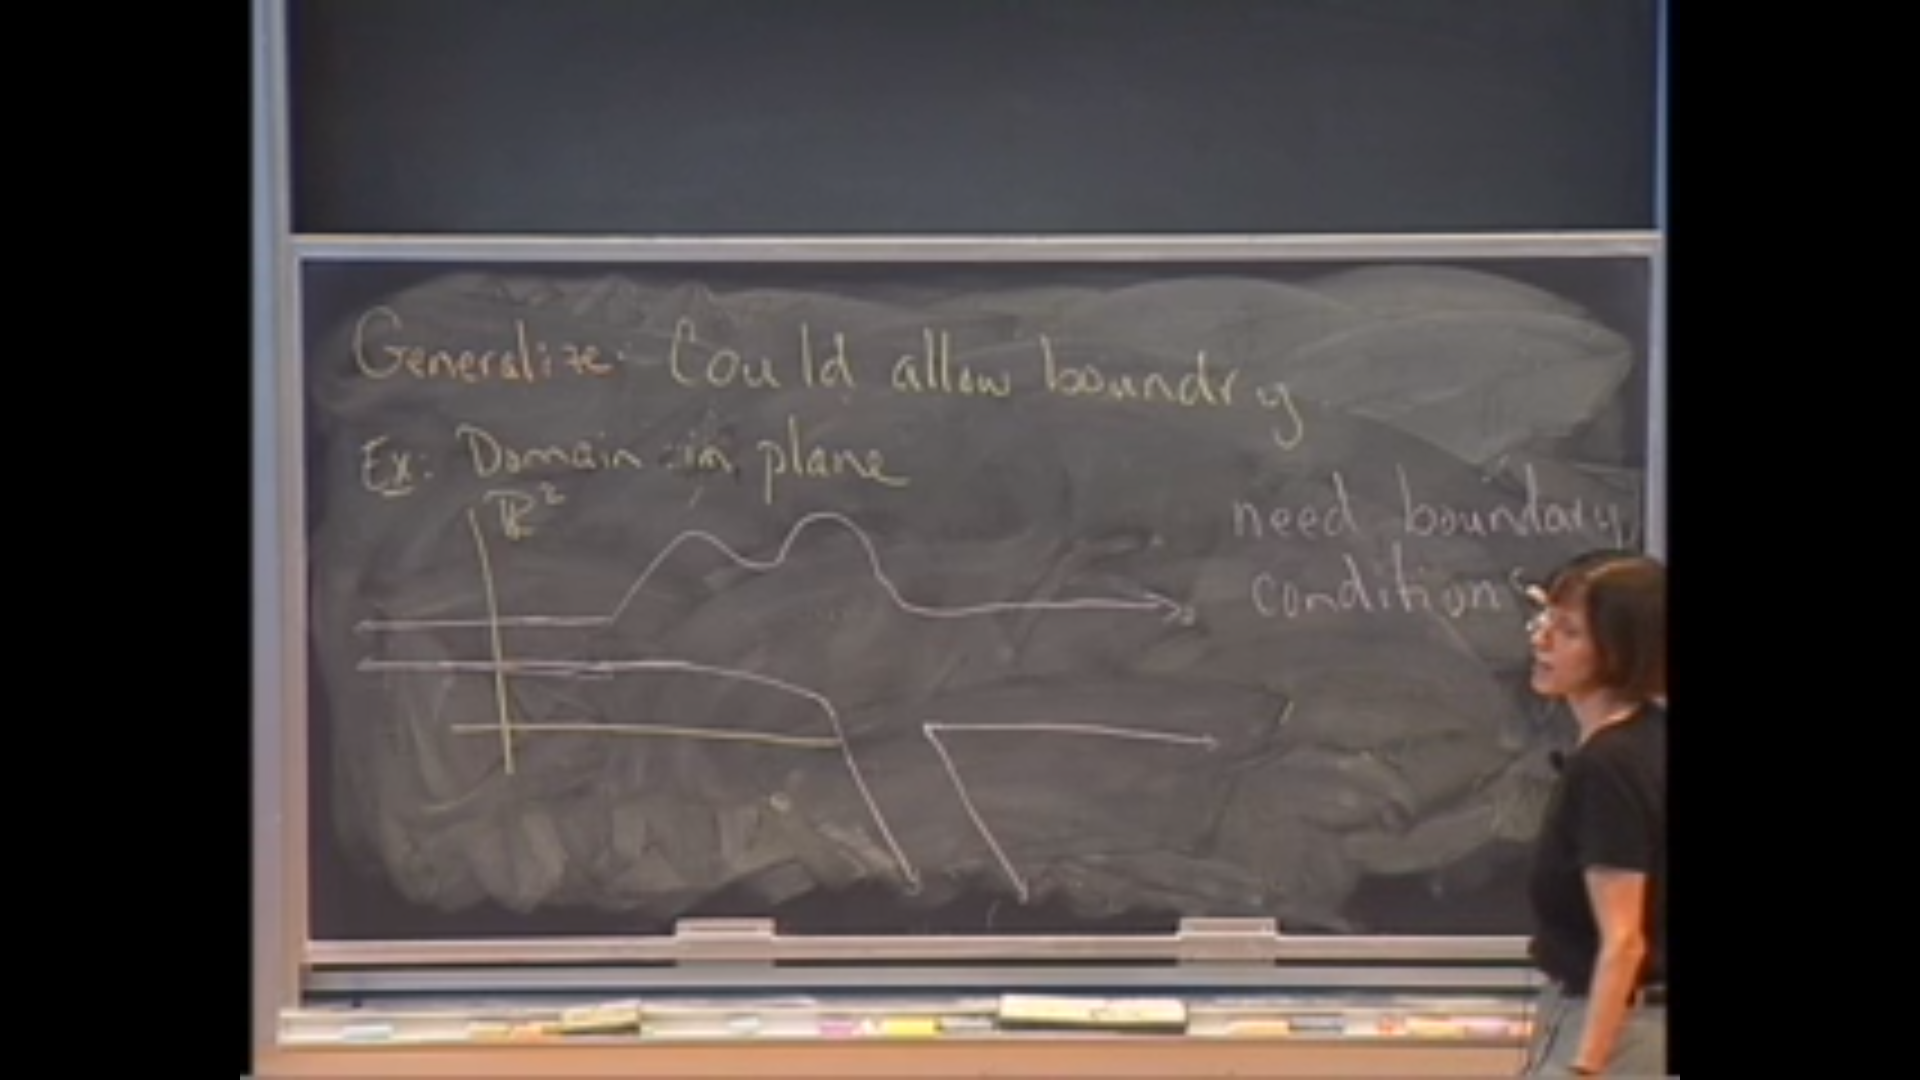 Generalize: Could allow boundry
Ex: Domain in plane
ℝ²
need boundary
conditions